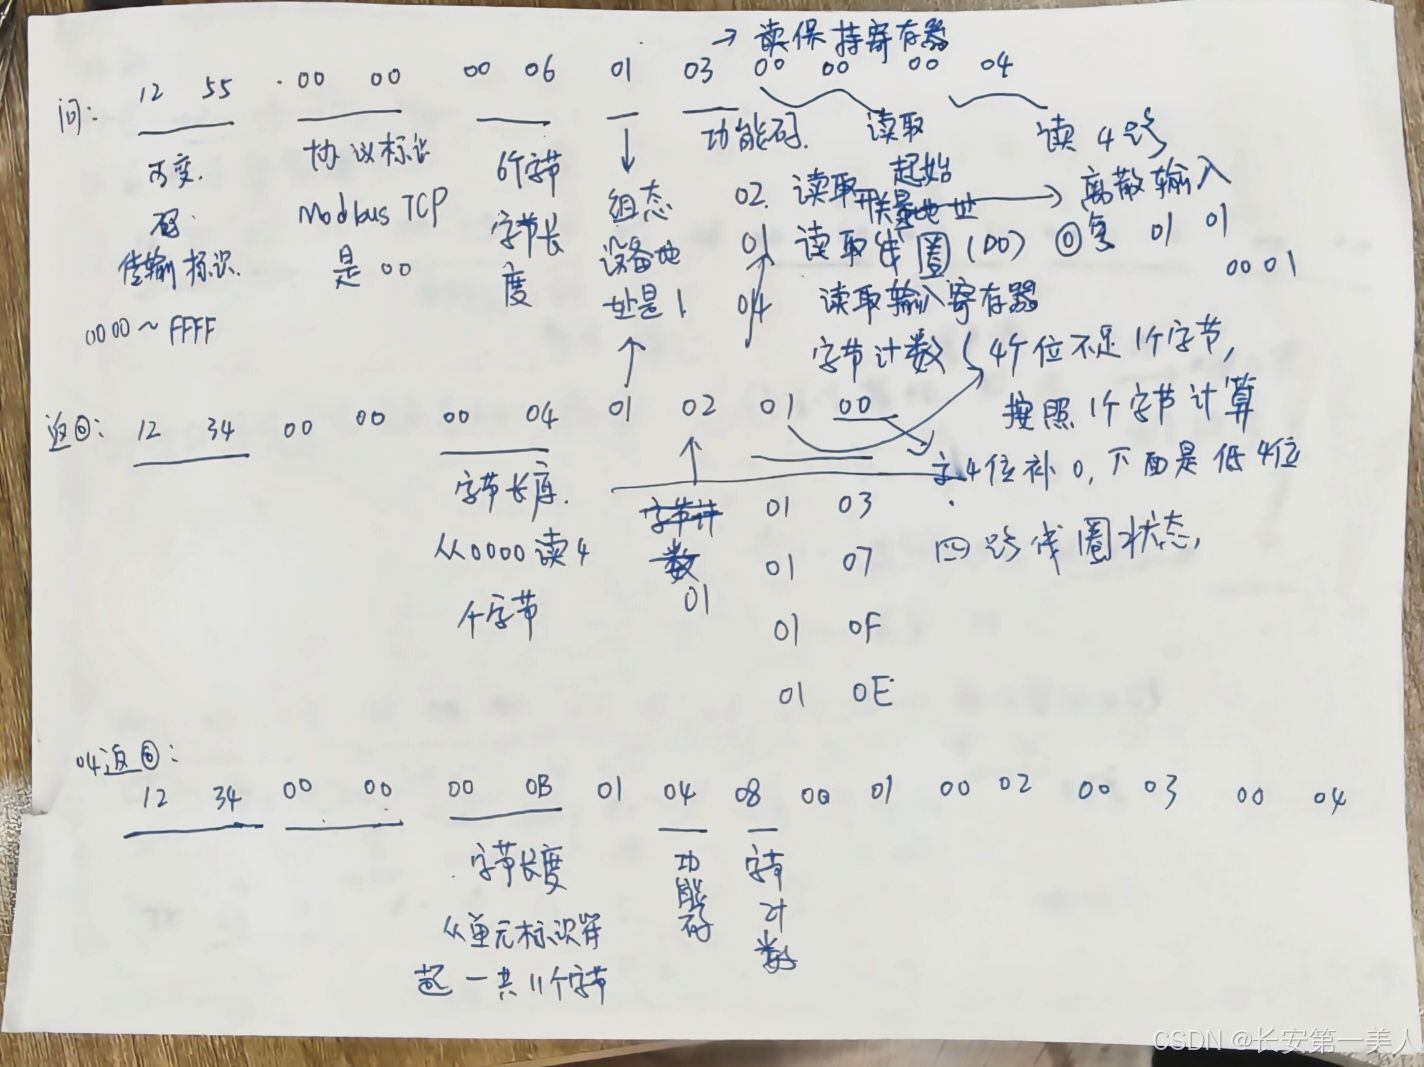 → 读保持寄存器
问: 12 55 00 00 00 06 01 03 00 00 00 04
可变. 协议标识 6个字节 功能码. 读取 读4路
码 Modbus TCP 字节长 组态 02. 读取 起始 离散输入
传输标识. 是 00 度 设备地 开关量地址
0000~FFFF 址是1 01 读取线圈(00) 01 01
00 01
04 读取输入寄存器
字节计数 4个位不足1个字节,
返回: 12 34 00 00 00 04 01 02 01 00 按照1个字节计算
字节长度. 4位补0,下面是低4位
字节计数 01 03
从0000读4 01 07 四路线圈状态,
个字节 01 01 0F
01 0E
04返回:
12 34 00 00 00 0B 01 04 08 00 01 00 02 00 03 00 04
字节长度 功能码 字节计数
从单元标识符
起一共11个字节
CSDN @长安第一美人